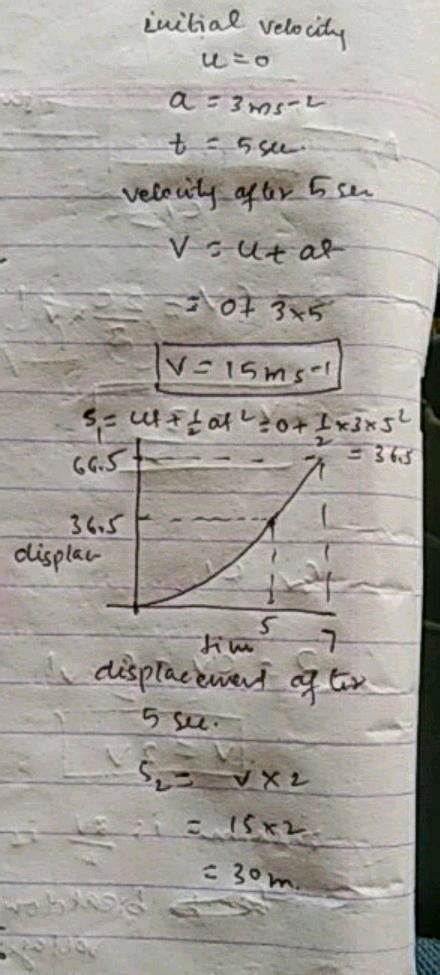 initial velocity
u = 0
a = 3ms-2
t = 5 sec.
velocity after 5 sec
V = u + at
= 0 + 3×5
V = 15ms-1
S1 = ut + 1/2 at2 = 0 + 1/2 ×3×5^2
= 36.5
66.5
36.5
displac
5
7
tim
displacement after
5 sec.
S2 = v×2
= 15×2
= 30m.